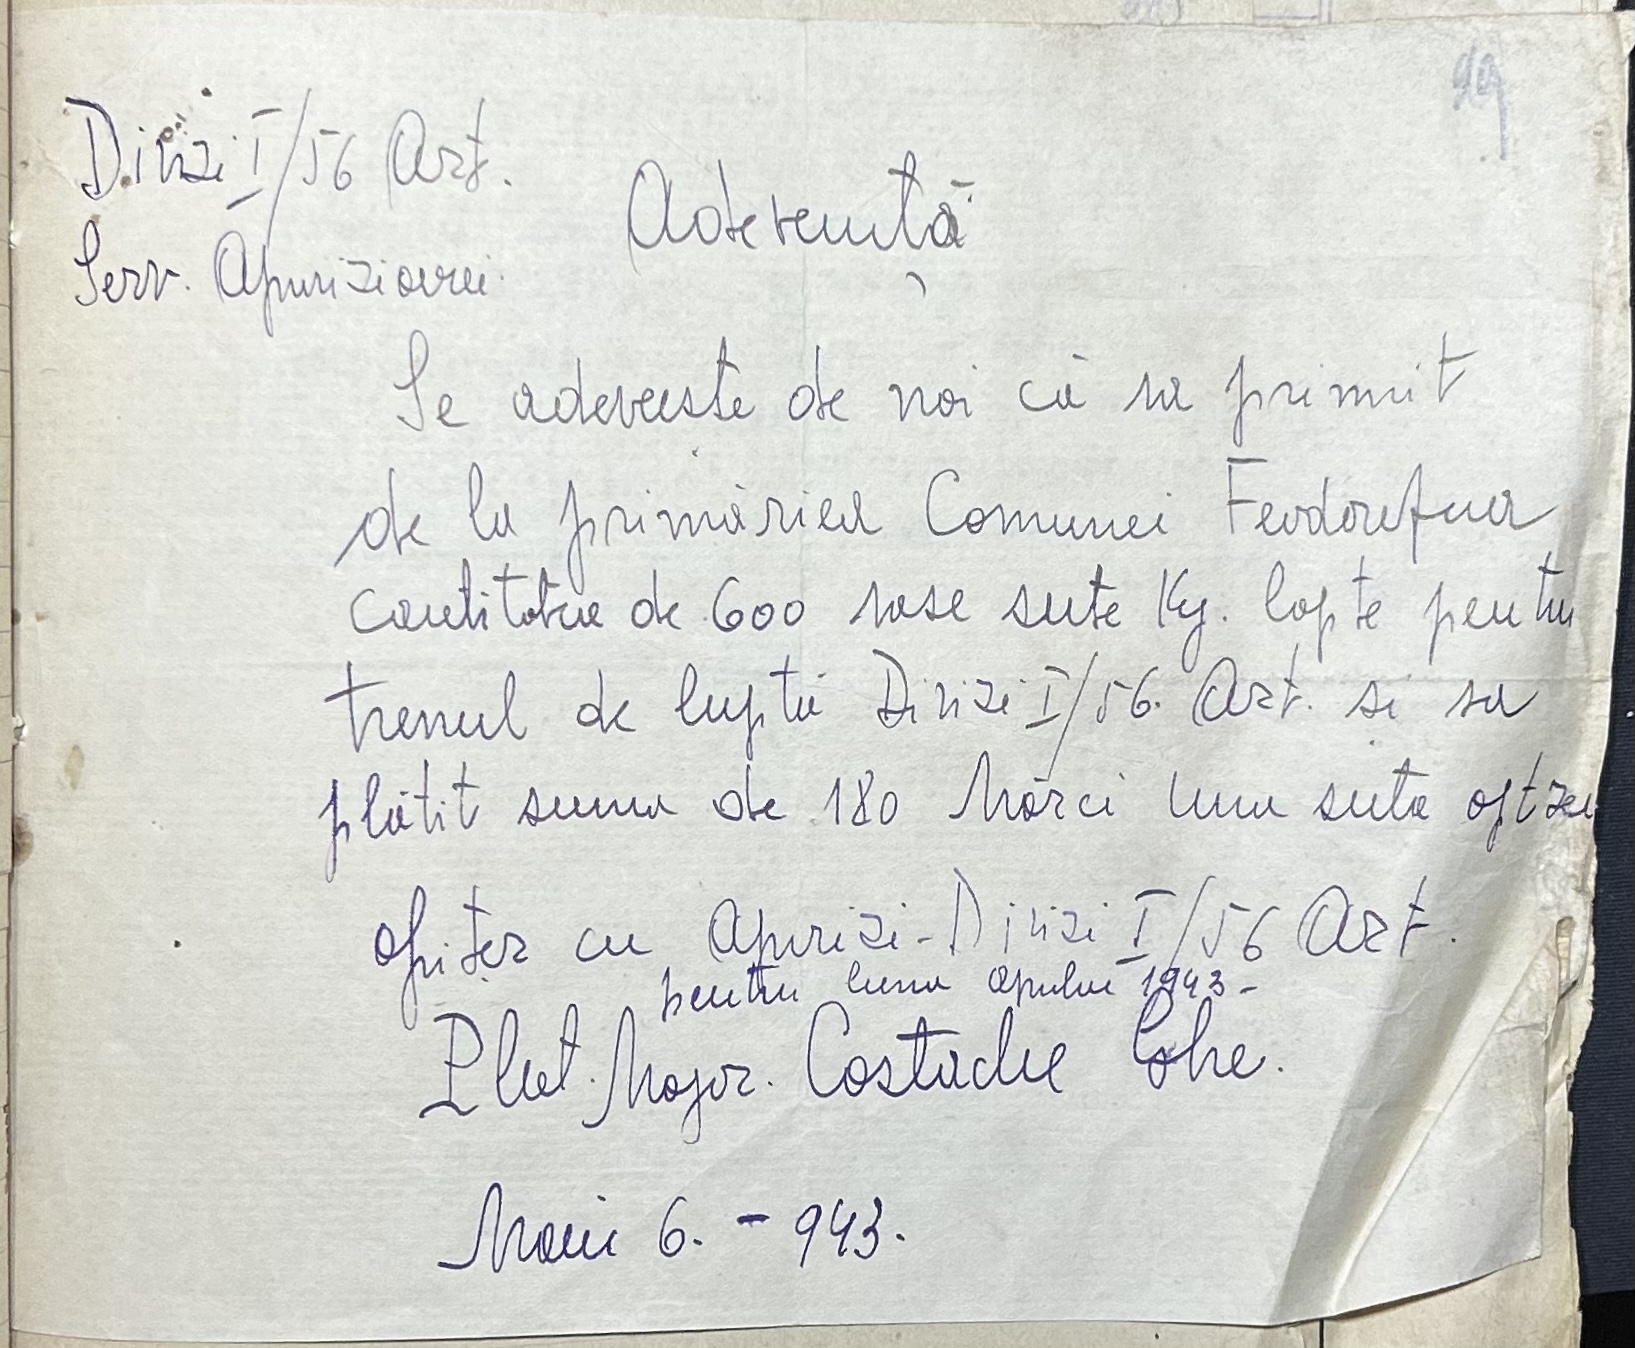 29
Divizi I/56 Art.
Serv. Aprovizionarei.
Adeverință
Se adevereste de noi că sa primit
de la primăriea Comunei Feodorofca
cantitatea de 600 sase sute Kg. lapte pentru
trenul de luptă Divizi I/56. Art. si sa
plătit suma de 180 Mărci una suta optzeci
Ofițer cu Aprovizi-Divizi I/56 Art.
pentru luna aprilie 1943-
Plut. Major. Costache
Mai 6. - 943.